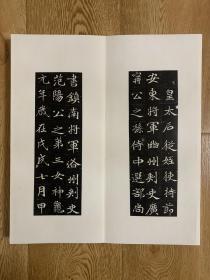 皇太后從姪使持節
安東將軍幽州刺史廣
寗公之孫侍中選部尚
書鎮南將軍洛州刺史
范陽公之第三女神龜
元年歲在戊戌七月甲